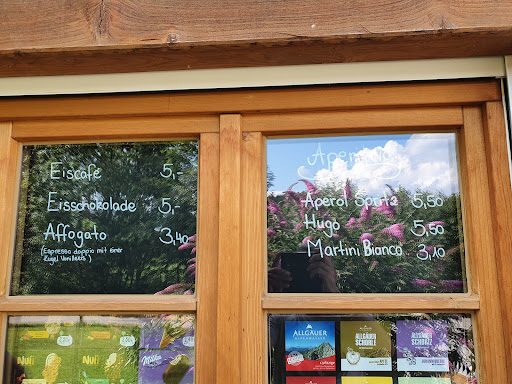 Eiscafe 5,-
Eisschokolade 5,-
Affogato 3,40
(Espresso doppio mit einer
Kugel Vanilleeis)
Aperitivo
Aperol Spritz 5,50
Hugo 5,50
Martini Bianco 3,10
Nui
Nui
Milka
ALLGÄUER
ALPENWASSER
ALLGÄUER
SCHORLE
ALLGÄUER